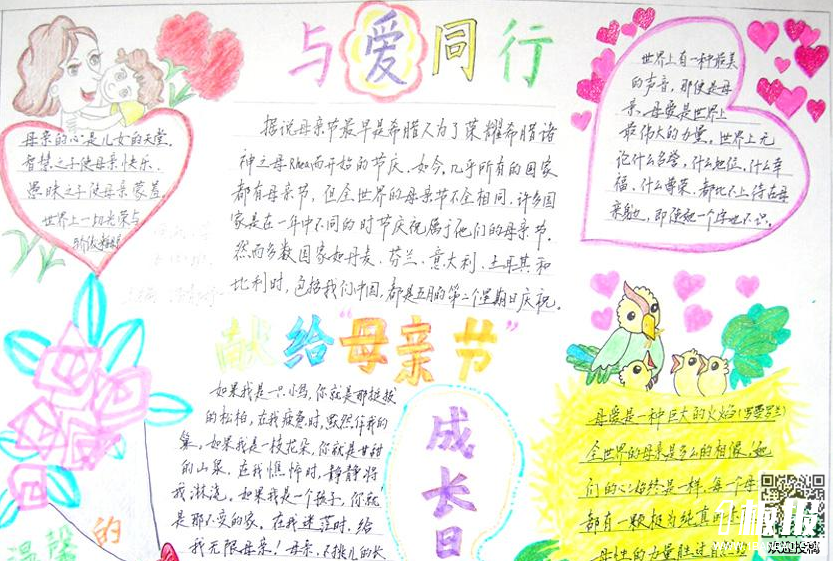 与爱同行
母亲的心是儿女的天堂。
智慧之子使母亲快乐，
愚昧之子使母亲蒙羞。
世界上一切光荣与
据说母亲节最早是希腊人为了荣耀希腊诸
神之母Rhea而开始的节庆。如今，几乎所有的国家
都有母亲节，但全世界的母亲节不全相同，许多国
家是在一年中不同的时节庆祝属于他们的母亲节。
然而多数国家如丹麦、芬兰、意大利、土耳其和
比利时，包括我们中国，都是五月的第二个星期日庆祝。
世界上有一种最美
的声音，那便是母
亲。母爱是世界上
最伟大的力量。世界上无
论什么名誉，什么地位，什么幸
福，什么尊荣，都比不上待在母
亲身边，即使她一个字也不识。
献给“母亲节”
如果我是一只小鸟，你就是那挺拔
的松柏，在我疲惫时，默然作我的
巢。如果我是一枝花朵，你就是甘甜
的山泉，在我憔悴时，静静将
我淋浇。如果我是一个孩子，你就
是那不变的家，在我迷茫时，给
我无限母亲！母亲，不挑儿的长
成长日
母爱是一种巨大的火焰（罗曼罗兰）
全世界的母亲是多么的相像！她
们的心始终是一样，每个母
都有一颗极为纯真的
母性的力量胜过自然的
温馨的
欢迎投稿